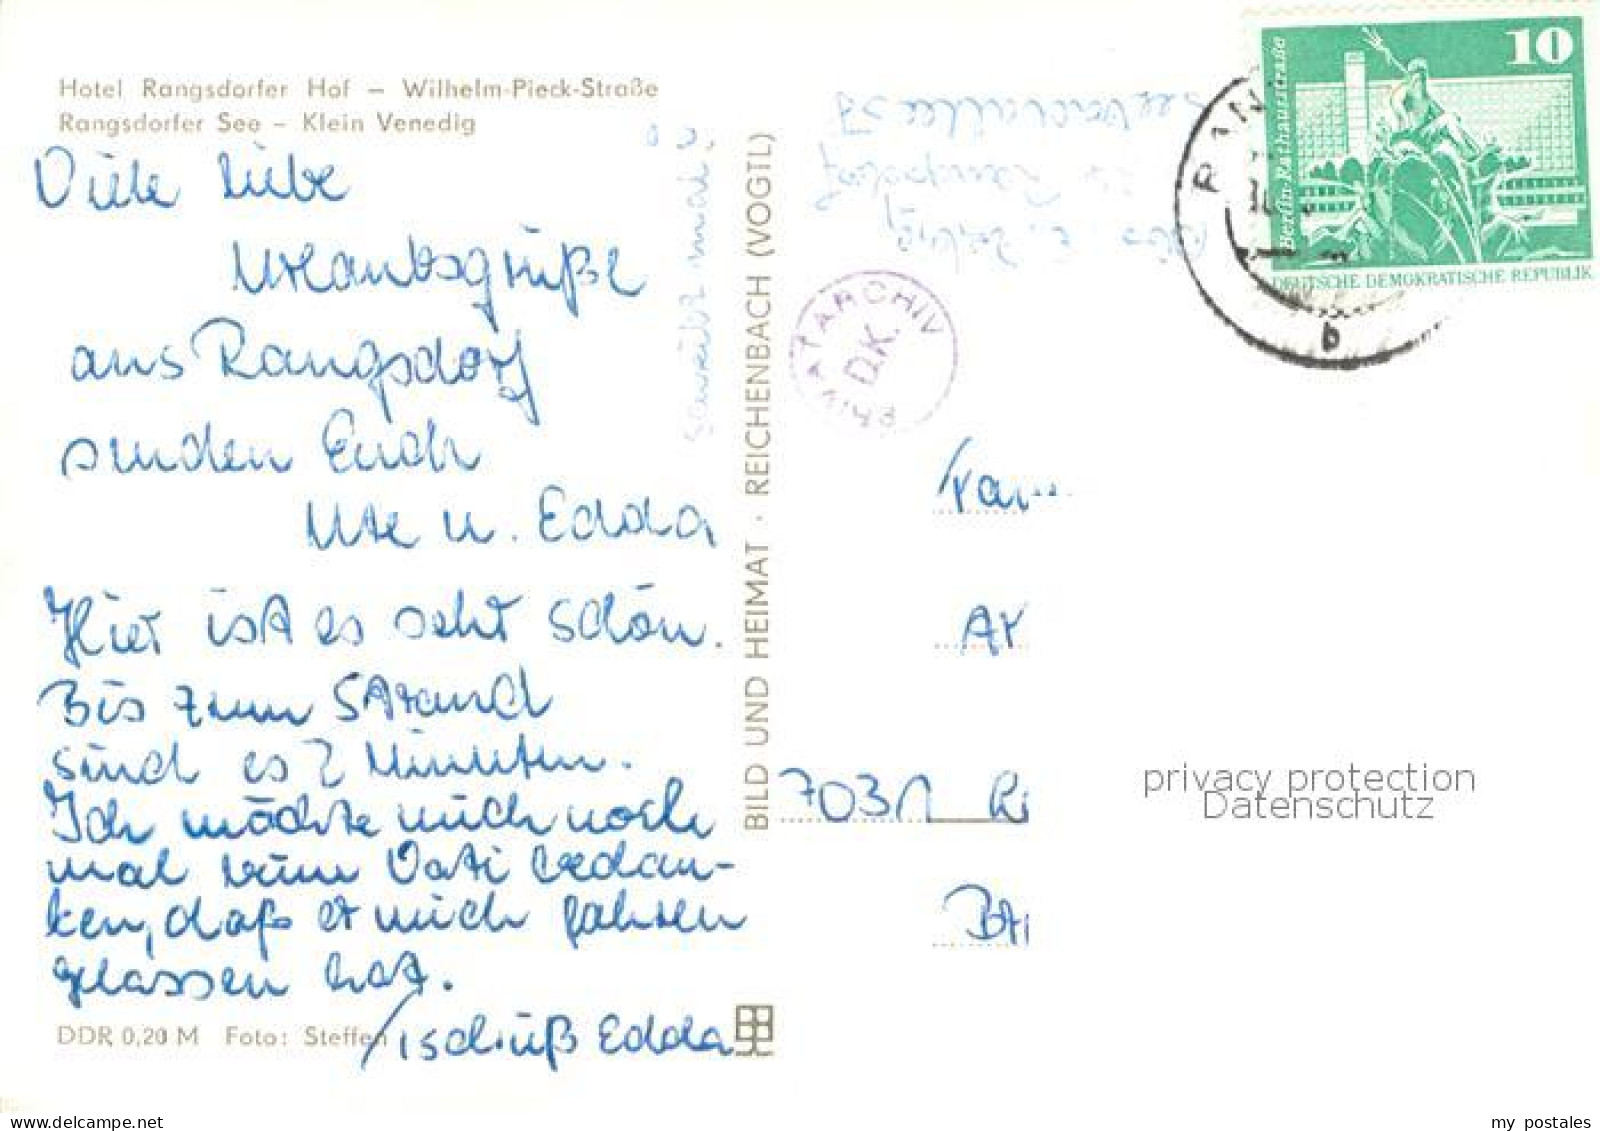 Hotel Rangsdorfer Hof – Wilhelm-Pieck-Straße
Rangsdorfer See – Klein Venedig
Viele liebe
Urlaubsgrüße
aus Rangsdorf
senden Euch
Ute u. Edda
Hier ist es sehr schön.
Bis zum Strand
sind es 2 Minuten.
Ich möchte mich noch
mal beim Vati bedan-
ken, daß er mich fahren
gelassen hat.
Tschüß Edda
DDR 0,20 M Foto: Steffen
BILD UND HEIMAT · REICHENBACH (VOGTL)
Schreibt mal!
PRIVATARCHIV
D.K.
10
Berlin-Rathausstraße
DEUTSCHE DEMOKRATISCHE REPUBLIK
b
Fam
7031
privacy protection
Datenschutz
delcampe.net
my_postales